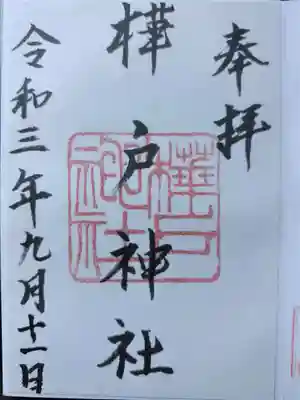 奉拝
樺戸神社
令和三年九月十一日
樺戸神社